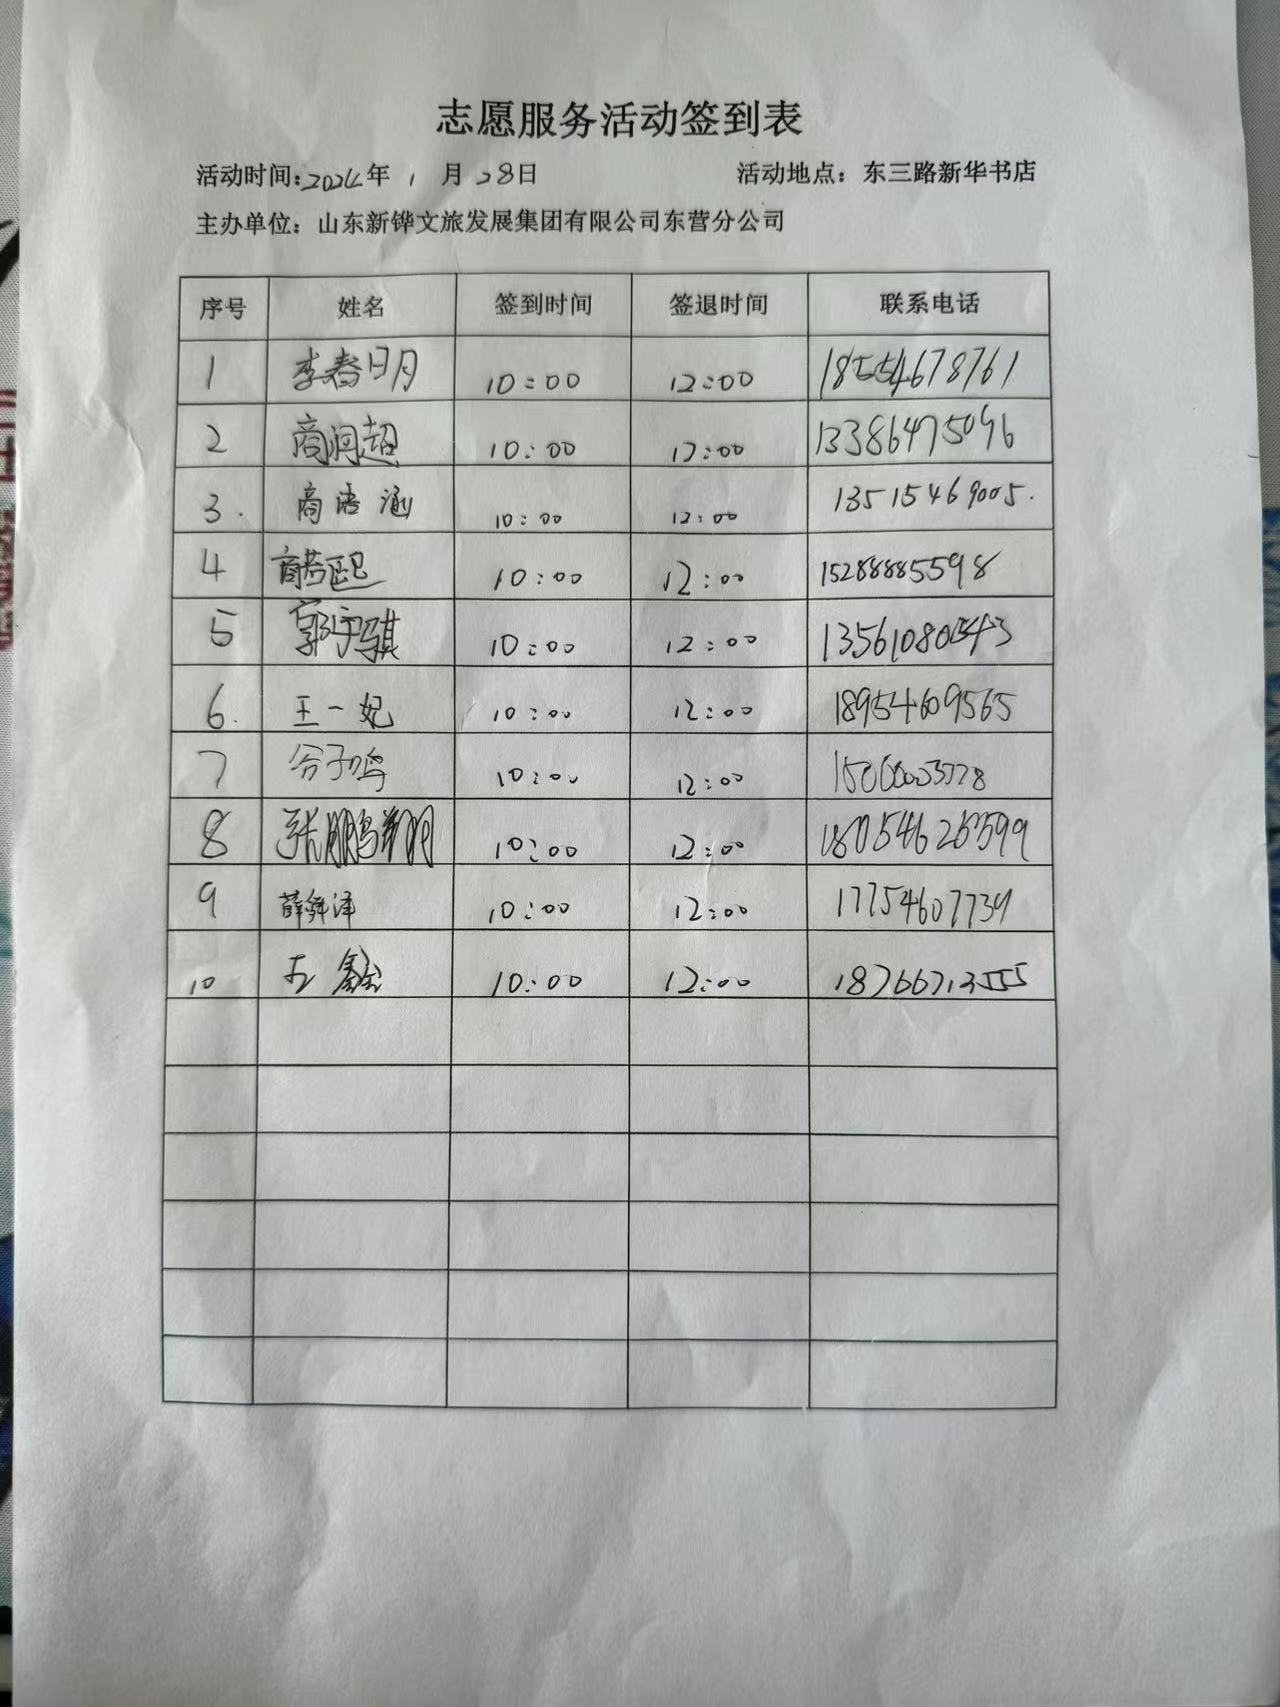 志愿服务活动签到表
活动时间:2024年 1 月 28日 活动地点：东三路新华书店
主办单位：山东新铧文旅发展集团有限公司东营分公司
序号 姓名 签到时间 签退时间 联系电话
1 李春明 10:00 12:00 18554678761
2 商润超 10:00 12:00 13386475096
3. 商语涵 10:00 12:00 13515469005.
4 商若熙 10:00 12:00 15288885598
5 郭宇骐 10:00 12:00
6. 王一妃 10:00 12:00 18954609565
7 10:00 12:00
8 张鹏翔 10:00 12:00
9 薛舜泽 10:00 12:00 17754607739
10 王鑫 10:00 12:00 18766713555